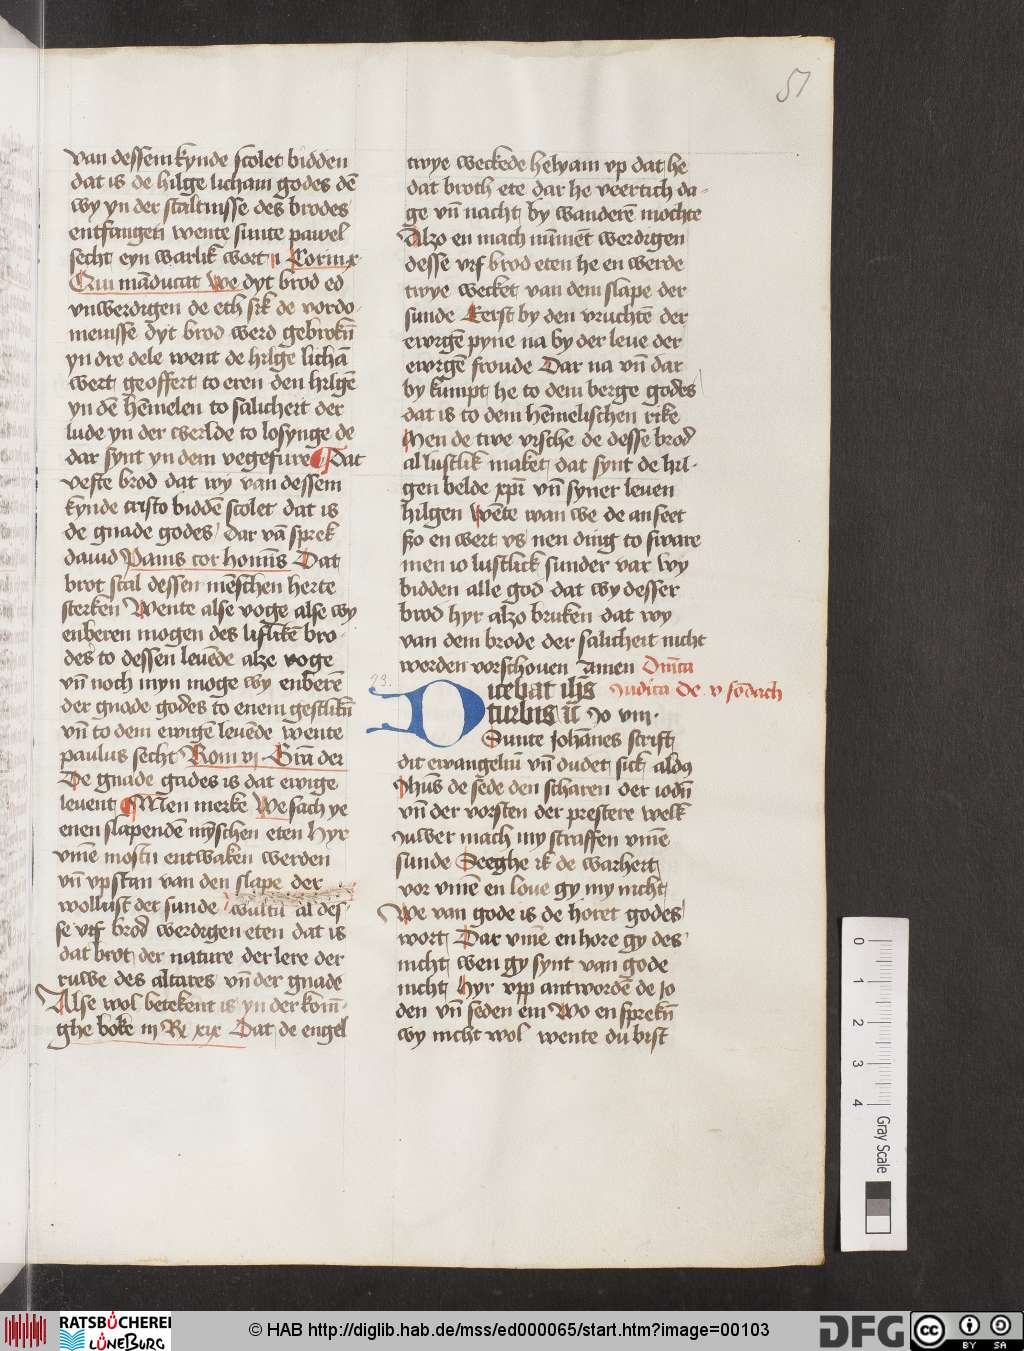 51
van dessem kynde scolet bidden
dat is de hilge licham godes dē
wy yn der staltnisse des brodes
entfangen wente sunte pawel
secht eyn warlik wort i Corin x
Qui māducat We dyt brod ed
vnwerdigen de eth sik de vordo-
menisse dyt brod werd gebrokē
yn dre dele went de hilge lichā
wert geoffert to eren den hilgē
yn dē hēmelen to salicheit der
lude yn der werlde to losynge de
dar synt yn dem vegefure Dat
veste brod dat wy van dessem
kynde cristo biddē scolet dat is
de gnade godes dar vā sprek
dauid Panis cor homīs Dat
brot scal dessen mēschen herte
sterken Wente alse voge alse wy
enberen mogen des liflikē bro-
des to dessen leuēde alze voge
vn̄ noch myn moge wy enberē
der gnade godes to enem gestlikē
vn̄ to dem ewigē leuēde wente
paulus secht Rom vj Grā dei
De gnade gades is dat ewige
leuent Men merke We sach ye
enen slapendē mȳschen eten Hyr
vmē mostu entwaken werden
vn̄ vpstan van den slape der
wollust der sunde wultu al des-
se vrf brod werdigen eten dat is
dat brot der nature der lere der
ruwe des altares vn̄ der gnade
Alse wol betekent is yn der konī-
ghe boke iij Rx xix Dat de engel
twye weckede helyam vp dat he
dat broth ete dar he veertich da-
ge vn̄ nacht by wanderē mochte
Alzo en mach nūmēt werdigen
desse vrf brod eten he en werde
twye wecket van dem slape der
sunde Eerst by den vruchtē der
ewigē pyne na by der leue der
ewigē froude Dar na vn̄ dar
by kūmpt he to dem berge godes
dat is to dem hēmelischen rike
Men de twe orsche de desse brod
al lustlik maket dat synt de hil-
gen belde xpī vn̄ syner leuen
hilgen Wēte wan we de anseet
szo en wert vs nen ding to sware
men io lustlick sunder var Wy
bidden alle god dat wy desser
brod hyr alzo bruken dat wy
van dem brode der salicheit nicht
werden vorschouen amen Dn̄ica
23.
Dicebat ihs̄ Judica De v sōdach
turbis iū Jo viii
Sunte Johānes scrift
dit ewangeliū vn̄ dudet sick aldꝰ
Jhūs de sede den scharen der iodē
vn̄ der vorsten der prestere welk
Juwer mach my straffen vmē
sunde Seeghe ik de warheit
vor vmē en loue gy my nicht
We van gode is de horet godes
wort Dar vmē en hore gy des
nicht wen gy synt van gode
nicht Hyr vpp antwordē de Jo
den vn̄ seden em Wo en sprekē
wy nicht wol wente du bist
0 1 2 3 4
Gray Scale
RATSBÜCHEREI
LÜNEBURG
© HAB http://diglib.hab.de/mss/ed000065/start.htm?image=00103
DFG
cc BY SA